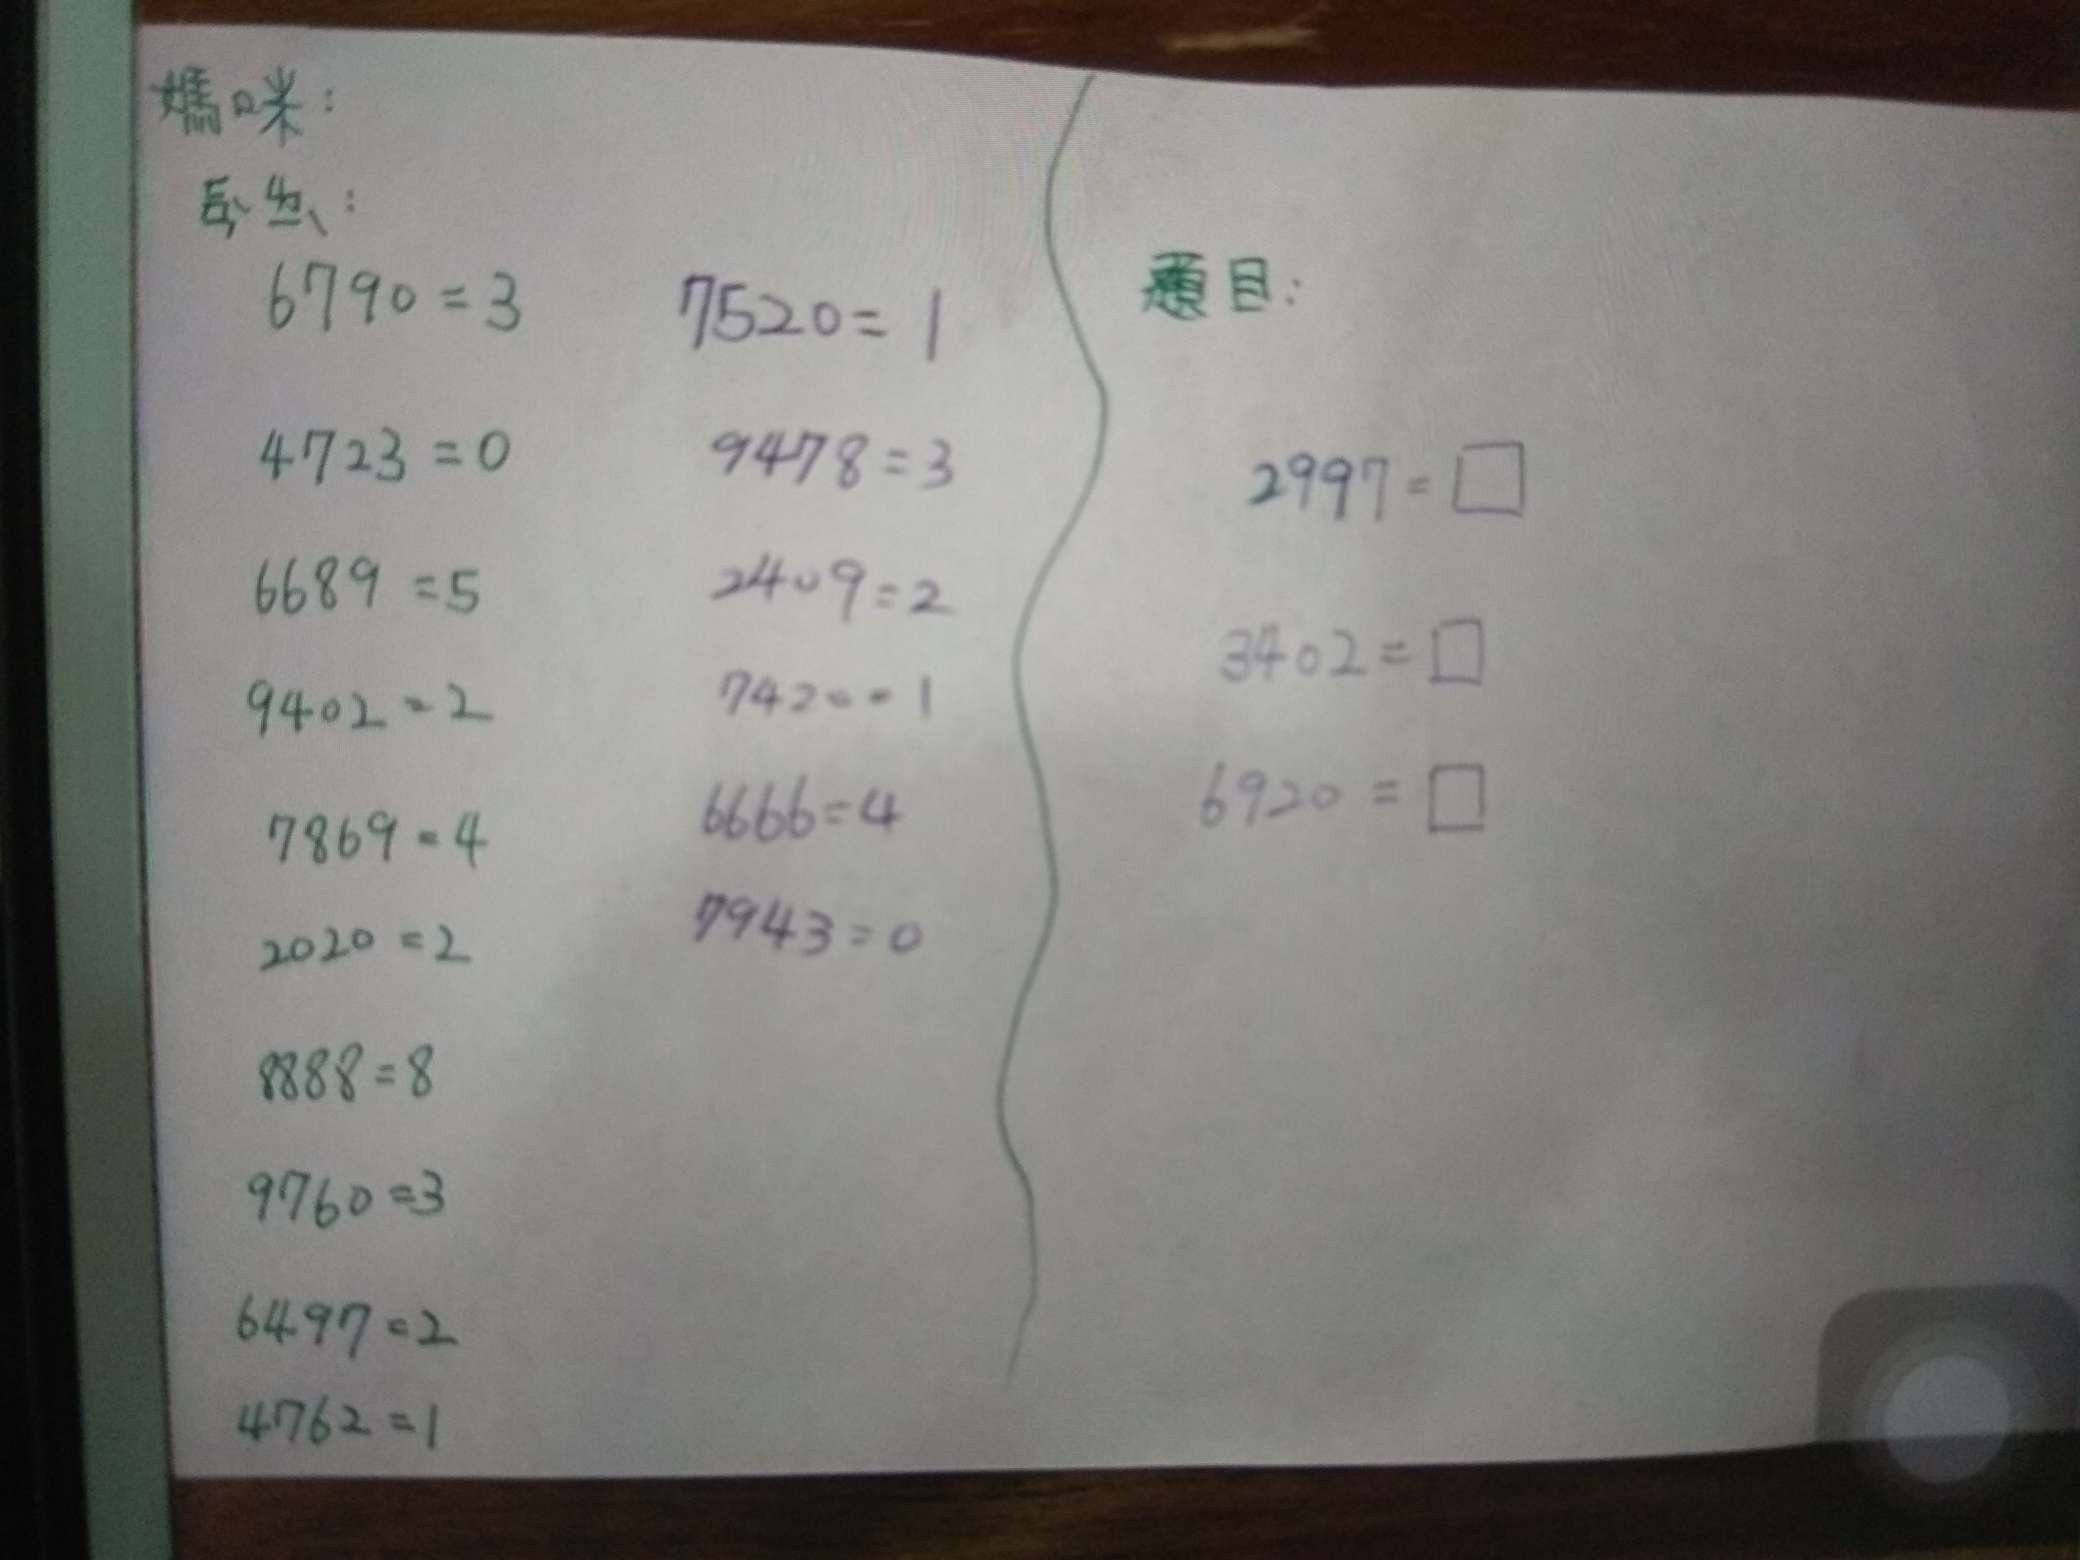 媽咪：
6790=3
4723=0
6689=5
9402=2
7869=4
2020=2
8888=8
9760=3
6497=2
4762=1
7520=1
9478=3
2409=2
7420=1
6666=4
7943=0
題目：
2997=□
3402=□
6920=□